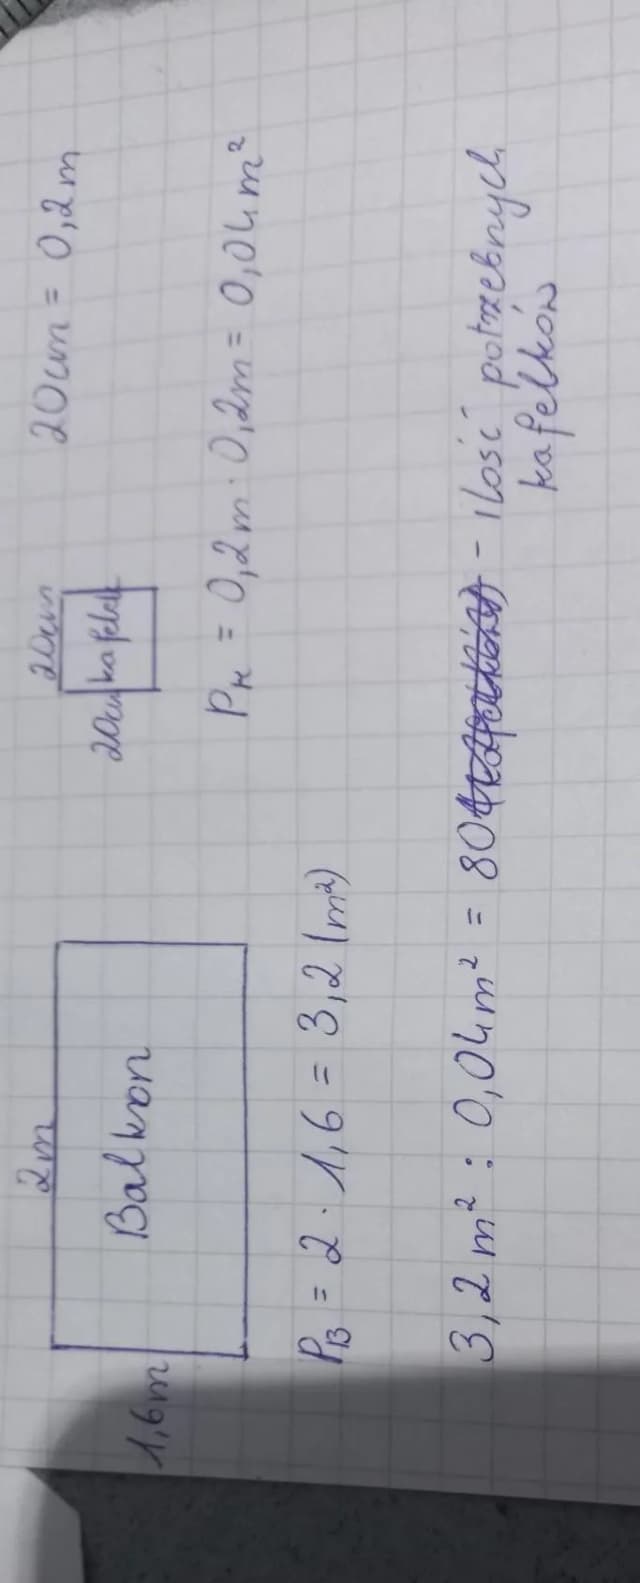 2m
1,6m
Balkon
20cm
20cm kafelek
20cm = 0,2m
P_K = 0,2m · 0,2m = 0,04m²
P_B = 2 · 1,6 = 3,2 (m²)
3,2m² : 0,04m² = 80 - ilość potrzebnych
kafelków